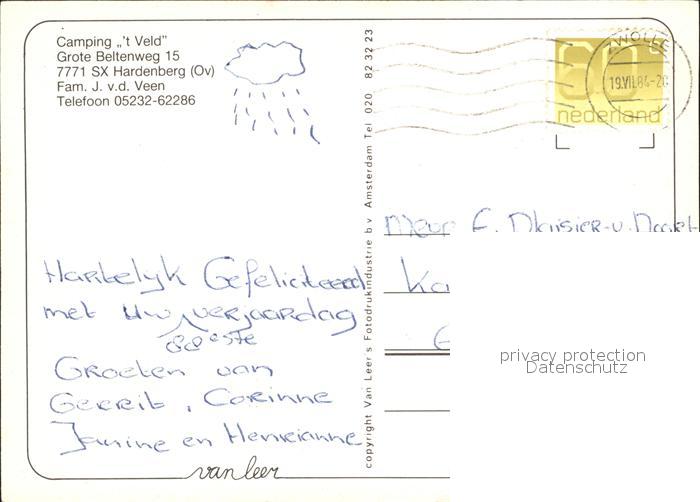 Camping „'t Veld"
Grote Beltenweg 15
7771 SX Hardenberg (Ov)
Fam. J. v.d. Veen
Telefoon 05232-62286
Hartelyk Gefeliciteerd
met uw verjaardag
88 este
Groeten van
Gerrit, Corinne
Janine en Henrianne
van leer
copyright Van Leer's Fotodrukindustrie b.v. Amsterdam Tel 020 82 32 23
ZWOLLE
19.VII.84-20
60
nederland
Mevr
privacy protection
Datenschutz